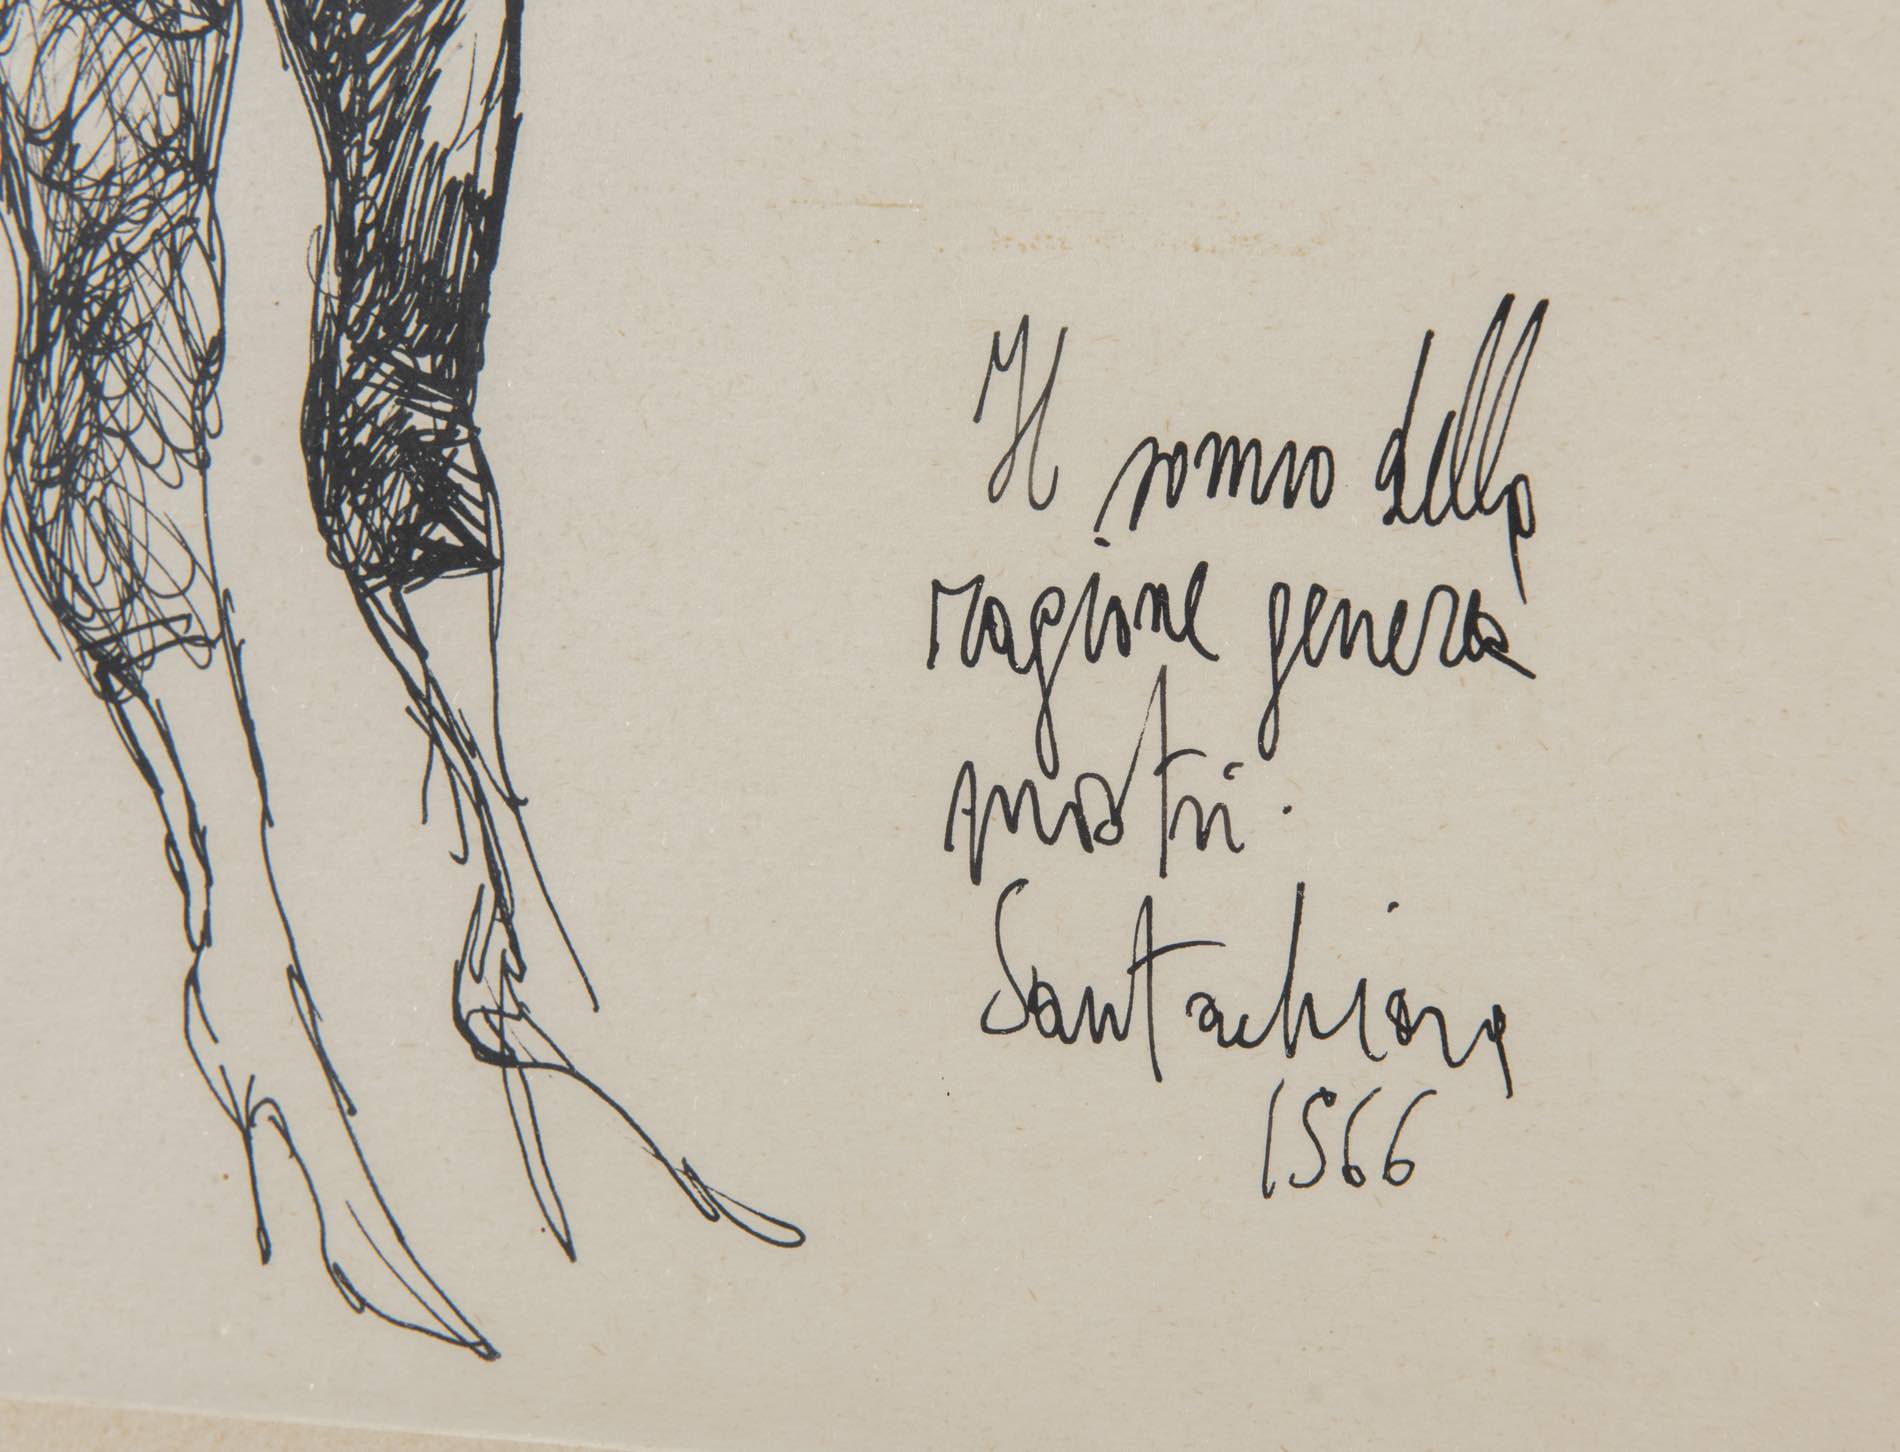 Il sonno della
ragione genera
mostri.
Santachiara
1966